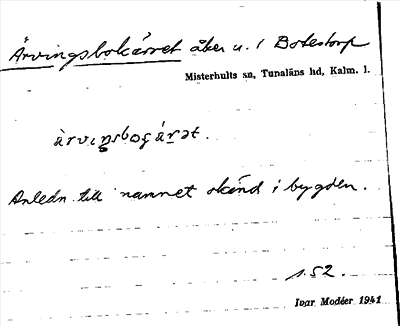 Ärvingsbokärret åker u. / Botestorp
Misterhults sn, Tunaläns hd, Kalm. l.
ärviŋsbogárət.
Anledn. till namnet okänd i bygden.
1.52.
Ivar Modéer 1941